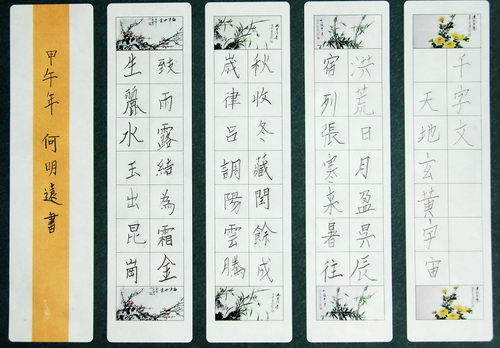 千字文
天地玄黃宇宙
洪荒日月盈昃辰
宿列張寒来暑往
秋收冬藏閏餘成
歲律呂調陽雲騰
致雨露結為霜金
生麗水玉出昆崗
甲午年 何明遠書